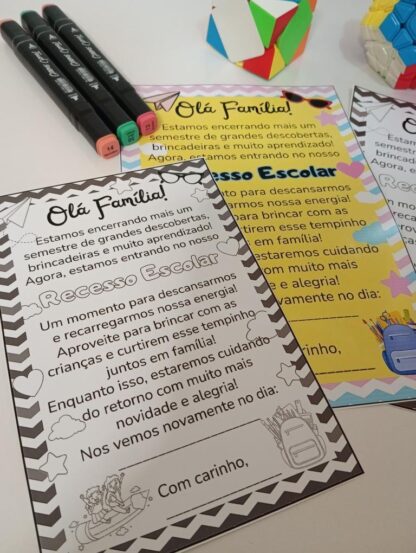 Olá Família!
Estamos encerrando mais um
semestre de grandes descobertas,
brincadeiras e muito aprendizado!
Agora, estamos entrando no nosso
Recesso Escolar
Um momento para descansarmos
e recarregarmos nossa energia!
Aproveite para brincar com as
crianças e curtirem esse tempinho
juntos em família!
Enquanto isso, estaremos cuidando
do retorno com muito mais
novidade e alegria!
Nos vemos novamente no dia:
Com carinho,
Olá Família!
Estamos encerrando mais um
semestre de grandes descobertas,
brincadeiras e muito aprendizado!
Agora, estamos entrando no nosso
cesso Escolar
mento para descansarmos
armos nossa energia!
para brincar com as
urtirem esse tempinho
em família!
estaremos cuidando
com muito mais
e alegria!
novamente no dia:
carinho,
Estamos
semestre de
brincadeira
Agora, e